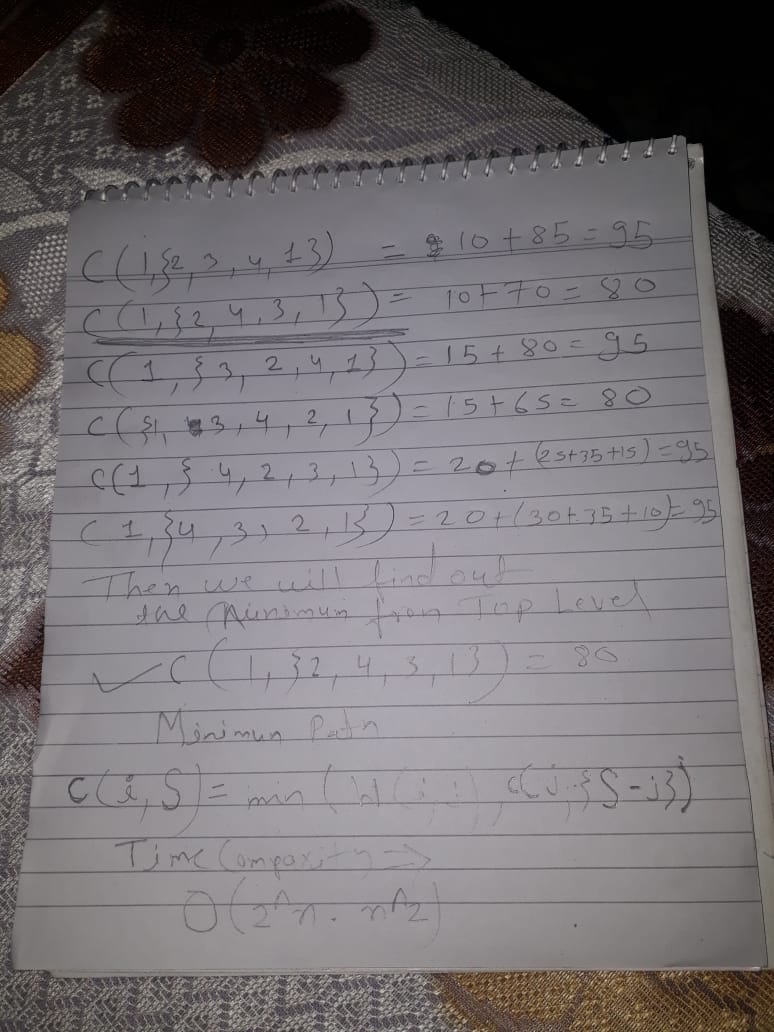 C(1,{2,3,4,1}) = 10+85=95
C(1,{2,4,3,1}) = 10+70=80
C(1,{3,2,4,1})=15+80=95
C({1,3,4,2,1})=15+65=80
C(1,{4,2,3,1})=20+(25+35+15)=95
C1,{4,3,2,1})=20+(30+35+10)=95
Then we will find out
the Minimum from Top Level
✓ C(1,}2,4,3,1})=80
Minimun Path
C(i,S)=min(W(i,j), C(j,{S-j})
Time Compaxity ⇒
O(2^n. n^2)